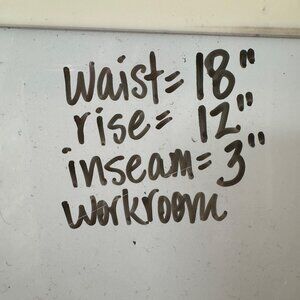 waist= 18"
rise= 12"
inseam= 3"
workroom